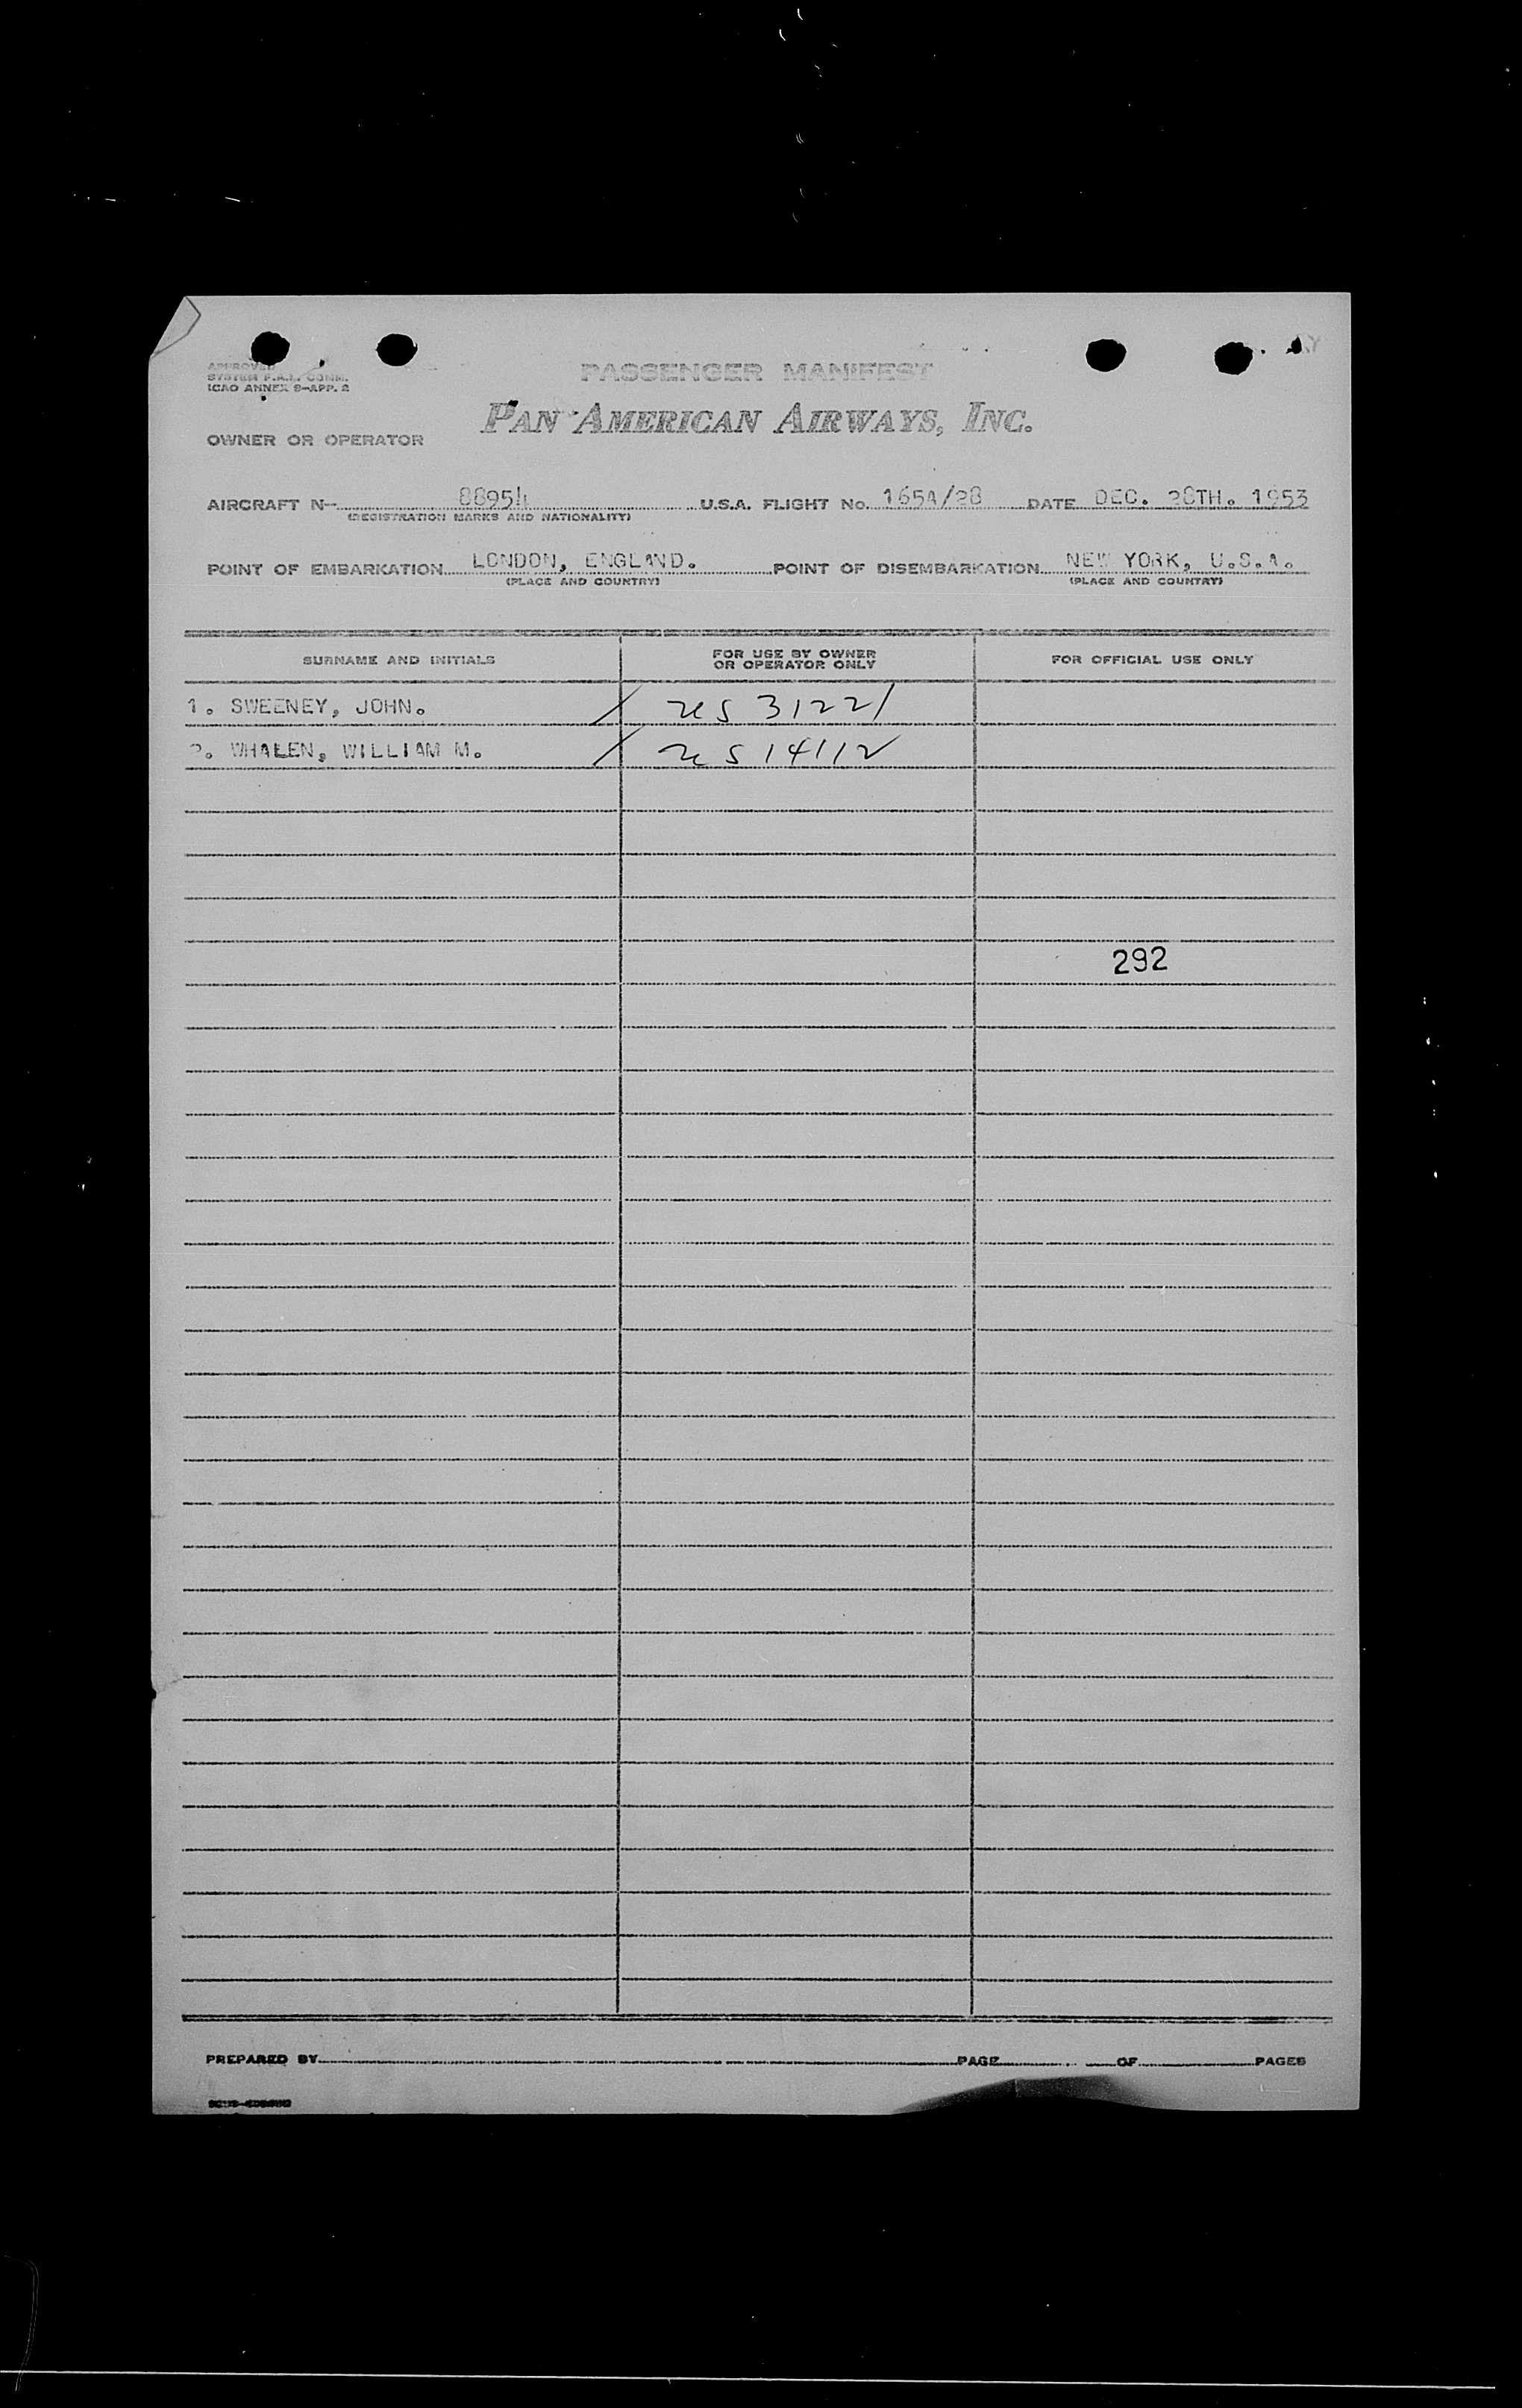 APPROVED
SYSTEM F.A.L. COMM.
ICAO ANNEX 9-APP. 2
PASSENGER MANIFEST
PAN AMERICAN AIRWAYS, INC.
OWNER OR OPERATOR
AIRCRAFT N- 88954 U.S.A. FLIGHT No. 165A/28 DATE DEC. 28TH. 1953
(REGISTRATION MARKS AND NATIONALITY)
POINT OF EMBARKATION LONDON, ENGLAND. POINT OF DISEMBARKATION NEW YORK, U.S.A.
(PLACE AND COUNTRY) (PLACE AND COUNTRY)
SURNAME AND INITIALS FOR USE BY OWNER OR OPERATOR ONLY FOR OFFICIAL USE ONLY
1. SWEENEY, JOHN. / 31221
2. WHALEN, WILLIAM M. / 14112
292
PREPARED BY PAGE OF PAGES